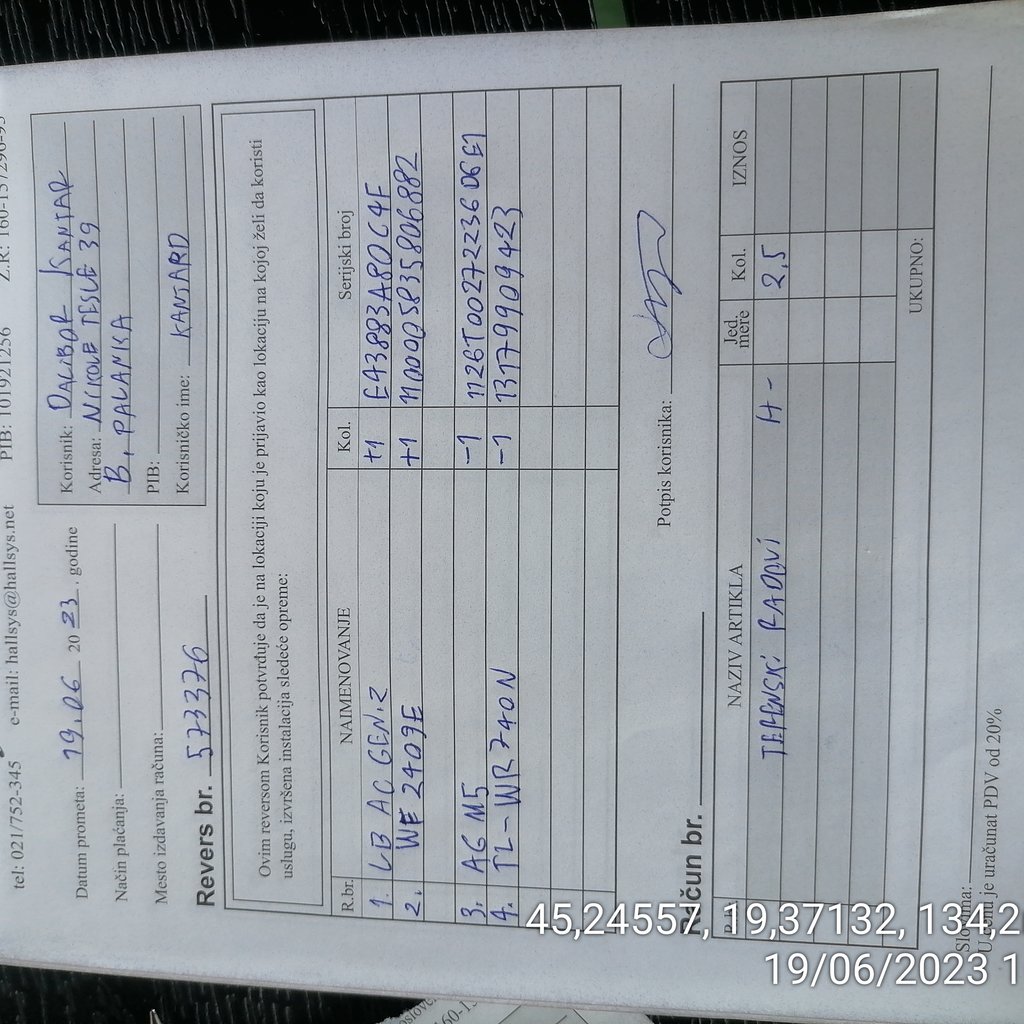 PIB: 101921256
tel: 021/752-345 e-mail: hallsys@hallsys.net
Datum prometa: 19.06 2023. godine
Način plaćanja:
Mesto izdavanja računa:
Revers br. 573376
Korisnik: DALIBOR KANTAR
Adresa: NIKOLE TESLE 39
B. PALANKA
PIB:
Korisničko ime: KANTARD
Ovim reversom Korisnik potvrđuje da je na lokaciji koju je prijavio kao lokaciju na kojoj želi da koristi
uslugu, izvršena instalacija sledeće opreme:
R.br. NAIMENOVANJE Kol. Serijski broj
1. LB AC GEN.2 +1 E43883A80C4F
2. WF 2409E +1 1100005835806882
3. AG M5 -1 1126T0027223606E1
4. TL-WR740N -1 13179909423
Potpis korisnika:
Račun br.
NAZIV ARTIKLA Jed. mere Kol. IZNOS
TERENSKI RADOVI H- 2,5
UKUPNO:
U cenu je uračunat PDV od 20%
45,24557, 19,37132, 134,2
19/06/2023 1